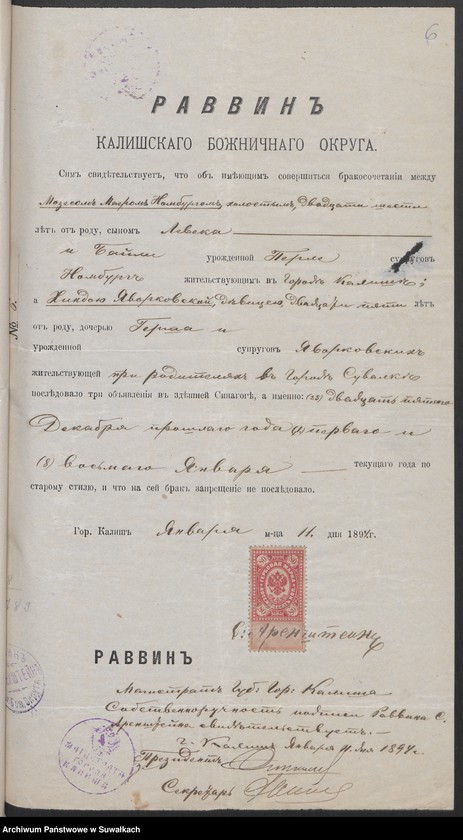 6
РАВВИНЪ
КАЛИШСКАГО БОЖНИЧНАГО ОКРУГА.
Симъ свидѣтельствуетъ, что объ имѣющимъ совершиться бракосочетаніи между
Мозесомъ МаеромъНомбургомъ, холостымъ, двадцати шести
лѣтъ отъ роду, сыномъ Левека
и Байли урожденной Перле супруговъ
Номбургъ жительствующимъ въ Городѣ Калишѣ;
а Хиндою Яворковской, дѣвицею, двадцати пяти лѣтъ
отъ роду, дочерью Герша и
урожденной супруговъ Яворковскихъ
жительствующей при родителяхъ въ Городѣ Сувалкѣ
послѣдовало три объявленія въ здѣшней Синагогѣ, а именно: (25) двадцать пятаго
Декабря прошлаго года (1) перваго и
(8) восьмаго Января текущаго года по
старому стилю, и что на сей бракъ запрещеніе не послѣдовало.
№ 5.
Гор. Калишъ Января м-ца 11. дня 1894 г.
С. Аренштейнъ
РАВВИНЪ
Магистратъ Губ: Гор: Калиша
Собственноручность подписи Раввина С.
Аренштейна свидѣтельствуетъ.
г. Калишъ Января 11 дня 1894 г.
Президентъ
Секретарь
Archiwum Państwowe w Suwałkach